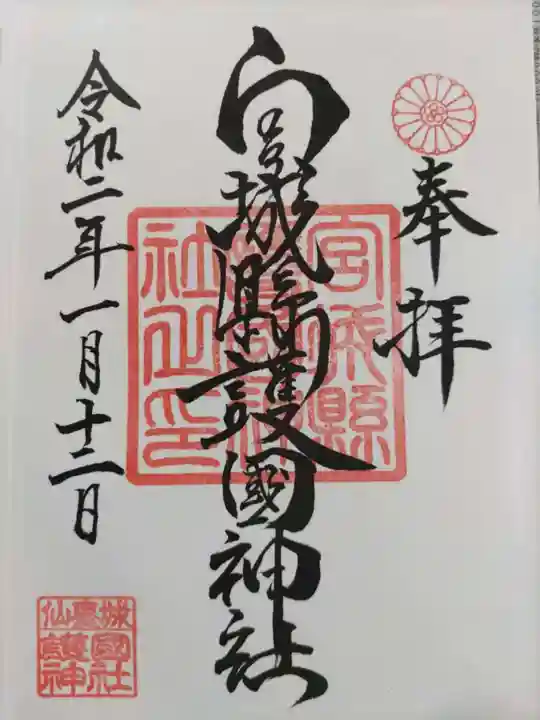 奉拝
宮城縣護國神社
宮城縣
護國神
社之印
令和二年一月十二日
城國社
仙臺護神